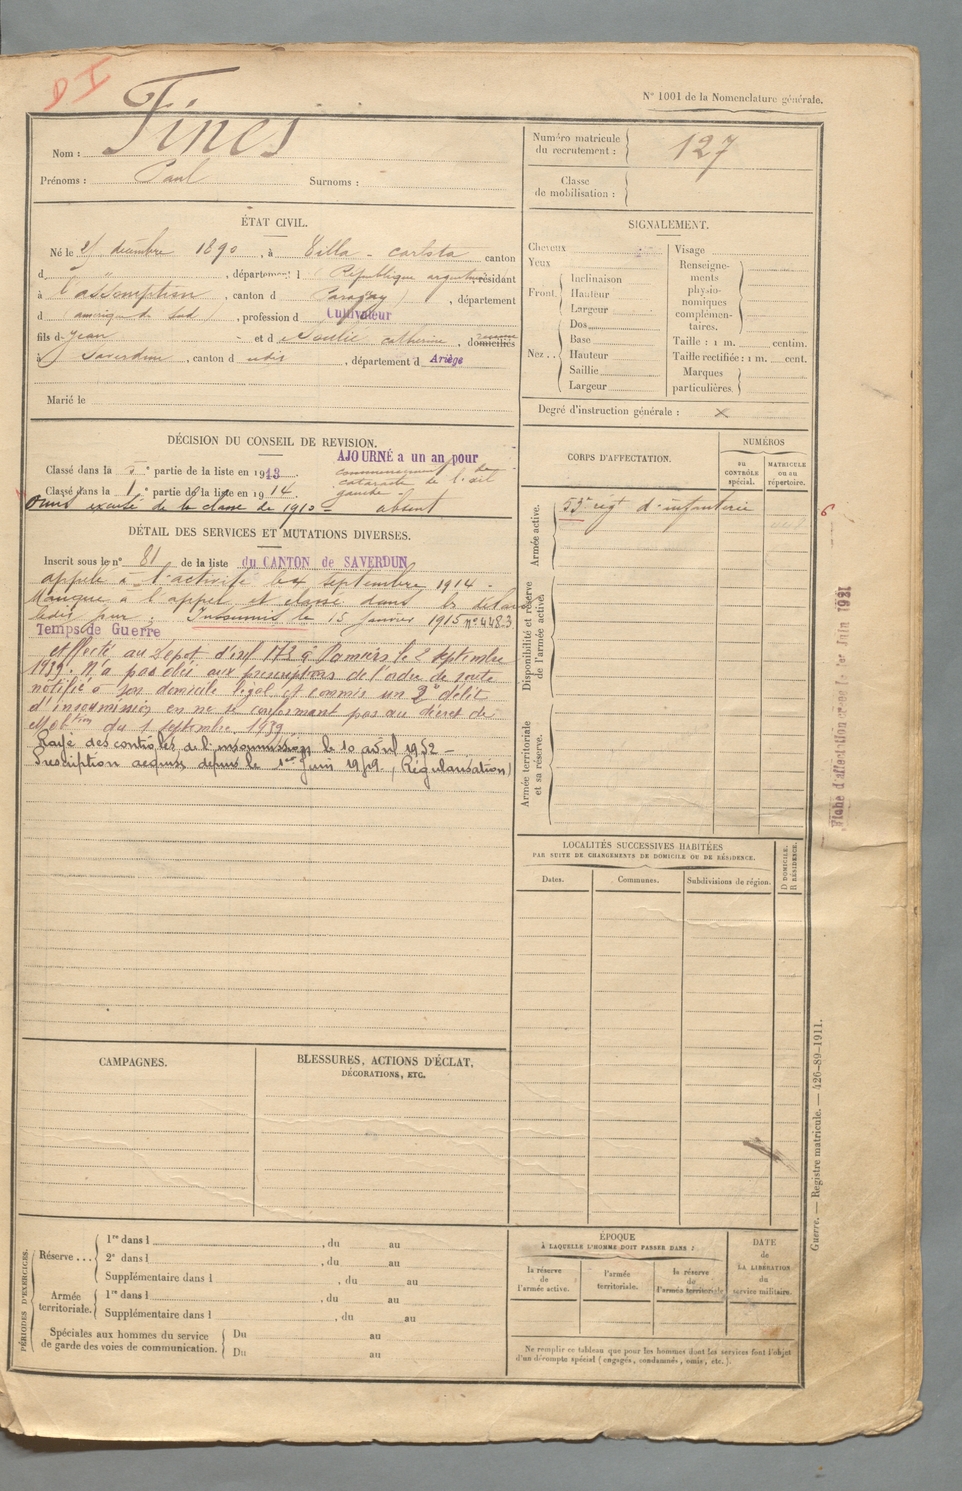 D I
N° 1001 de la Nomenclature générale.
Nom : Fines
Prénoms : Paul Surnoms :
Numéro matricule du recrutement : 127
Classe de mobilisation :
ÉTAT CIVIL.
Né le décembre 1890, à Villa - carlota canton
d " , département République argentine, résidant
à l'assomption, canton d Paraguay), département
d (amerique du Sud), profession d Cultivateur
fils de Jean et d Soulié catherine, domiciliés
à Saverdun, canton d udis, département d Ariège
Marié le
SIGNALEMENT.
Cheveux
Yeux
Front. Inclinaison
Hauteur
Largeur
Nez.. Dos
Base
Hauteur
Saillie
Largeur
Visage
Renseigne-
ments
physio-
nomiques
complémen-
taires.
Taille : 1 m. centim.
Taille rectifiée : 1 m. cent.
Marques
particulières.
Degré d'instruction générale : X
DÉCISION DU CONSEIL DE REVISION.
AJOURNÉ a un an pour
Classé dans la 5e partie de la liste en 1913 commencement de
cataracte de l'œil
Classé dans la 1e partie de la liste en 1914 gauche -
Omis excusé de la classe de 1910 - absent
DÉTAIL DES SERVICES ET MUTATIONS DIVERSES.
Inscrit sous le n° 81 de la liste du CANTON de SAVERDUN
appelé à l'activité le 4 septembre 1914 -
Manque à l'appel et classé dans
Insoumis le 15 Janvier 1915 n° 4483
Temps de Guerre
affecté au Dépot d'inf 173 à Pamiers le 2 septembre
1939. N'a pas obéi aux prescriptions de l'ordre de route
notifié à son domicile légal et commis un 2e délit
d'insoumission en ne se conformant pas au décret de
Mobtion du 1 septembre 1939.
Rayé des contrôles de l'insoumission le 10 avril 1952 -
Prescription acquise depuis le 1er Juin 1949. (Régularisation)
CORPS D'AFFECTATION.
NUMÉROS
au CONTRÔLE spécial.
MATRICULE ou au répertoire.
Armée active.
53e régt d'infanterie
6
Disponibilité et réserve de l'armée active.
Armée territoriale et sa réserve.
Fiche d'affectation le 1er Juin 1931
LOCALITÉS SUCCESSIVES HABITÉES
PAR SUITE DE CHANGEMENTS DE DOMICILE OU DE RÉSIDENCE.
Dates. Communes. Subdivisions de région.
D DOMICILE.
R RÉSIDENCE.
CAMPAGNES.
BLESSURES, ACTIONS D'ÉCLAT,
DÉCORATIONS, ETC.
Guerre. — Registre matricule. — 426-89-1911.
PÉRIODES D'EXERCICES.
Réserve ... 1re dans l , du au
2e dans l , du au
Supplémentaire dans l , du au
Armée territoriale. 1re dans l , du au
Supplémentaire dans l , du au
Spéciales aux hommes du service
de garde des voies de communication.
Du au
Du au
ÉPOQUE
À LAQUELLE L'HOMME DOIT PASSER DANS :
la réserve de l'armée active.
l'armée territoriale.
la réserve de l'armée territoriale
DATE
de
LA LIBÉRATION
du
service militaire.
Ne remplir ce tableau que pour les hommes dont les services font l'objet
d'un décompte spécial (engagés, condamnés, omis, etc.).